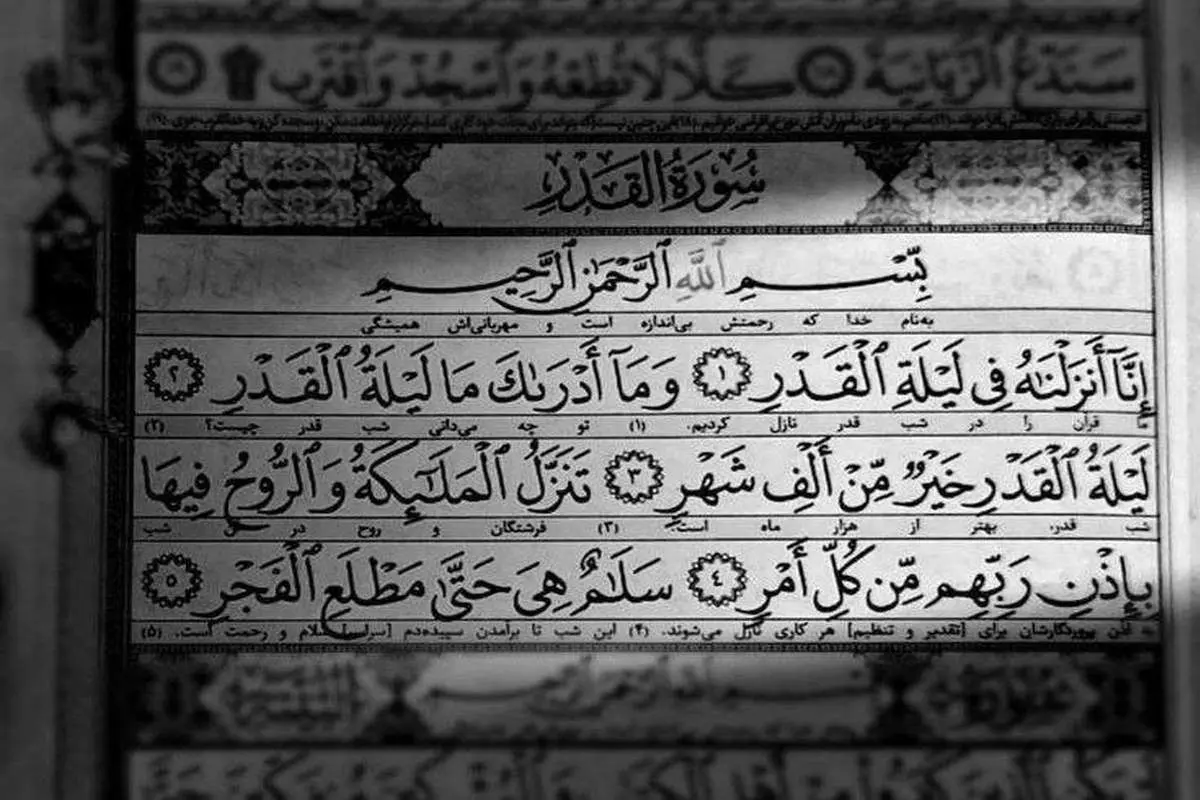 سَنَدْعُ ٱلزَّبَانِيَةَ ١٨ كَلَّا لَا تُطِعْهُ وَٱسْجُدْ وَٱقْتَرِب ۩ ١٩
سُورَةُ القَدْرِ
بِسْمِ ٱللَّهِ ٱلرَّحْمَٰنِ ٱلرَّحِيمِ
به‌نام خدا که رحمتش بی‌اندازه است و مهربانی‌اش همیشگی
إِنَّآ أَنزَلْنَٰهُ فِى لَيْلَةِ ٱلْقَدْرِ ١ وَمَآ أَدْرَىٰكَ مَا لَيْلَةُ ٱلْقَدْرِ ٢
ما قرآن را در شب قدر نازل کردیم. (۱) تو چه می‌دانی شب قدر چیست؟ (۲)
لَيْلَةُ ٱلْقَدْرِ خَيْرٌ مِّنْ أَلْفِ شَهْرٍ ٣ تَنَزَّلُ ٱلْمَلَٰٓئِكَةُ وَٱلرُّوحُ فِيهَا
شب قدر، بهتر از هزار ماه است. (۳) فرشتگان و روح در شب
بِإِذْنِ رَبِّهِم مِّن كُلِّ أَمْرٍ ٤ سَلَٰمٌ هِىَ حَتَّىٰ مَطْلَعِ ٱلْفَجْرِ ٥
به اذن پروردگارشان برای [تقدیر و تنظیم] هر کاری نازل می‌شوند. (۴) این شب تا برآمدن سپیده‌دم [سراسر] سلام و رحمت است. (۵)
بسم الله الرحمن الرحيم